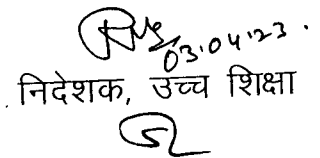 03.04.23.
निदेशक, उच्च शिक्षा